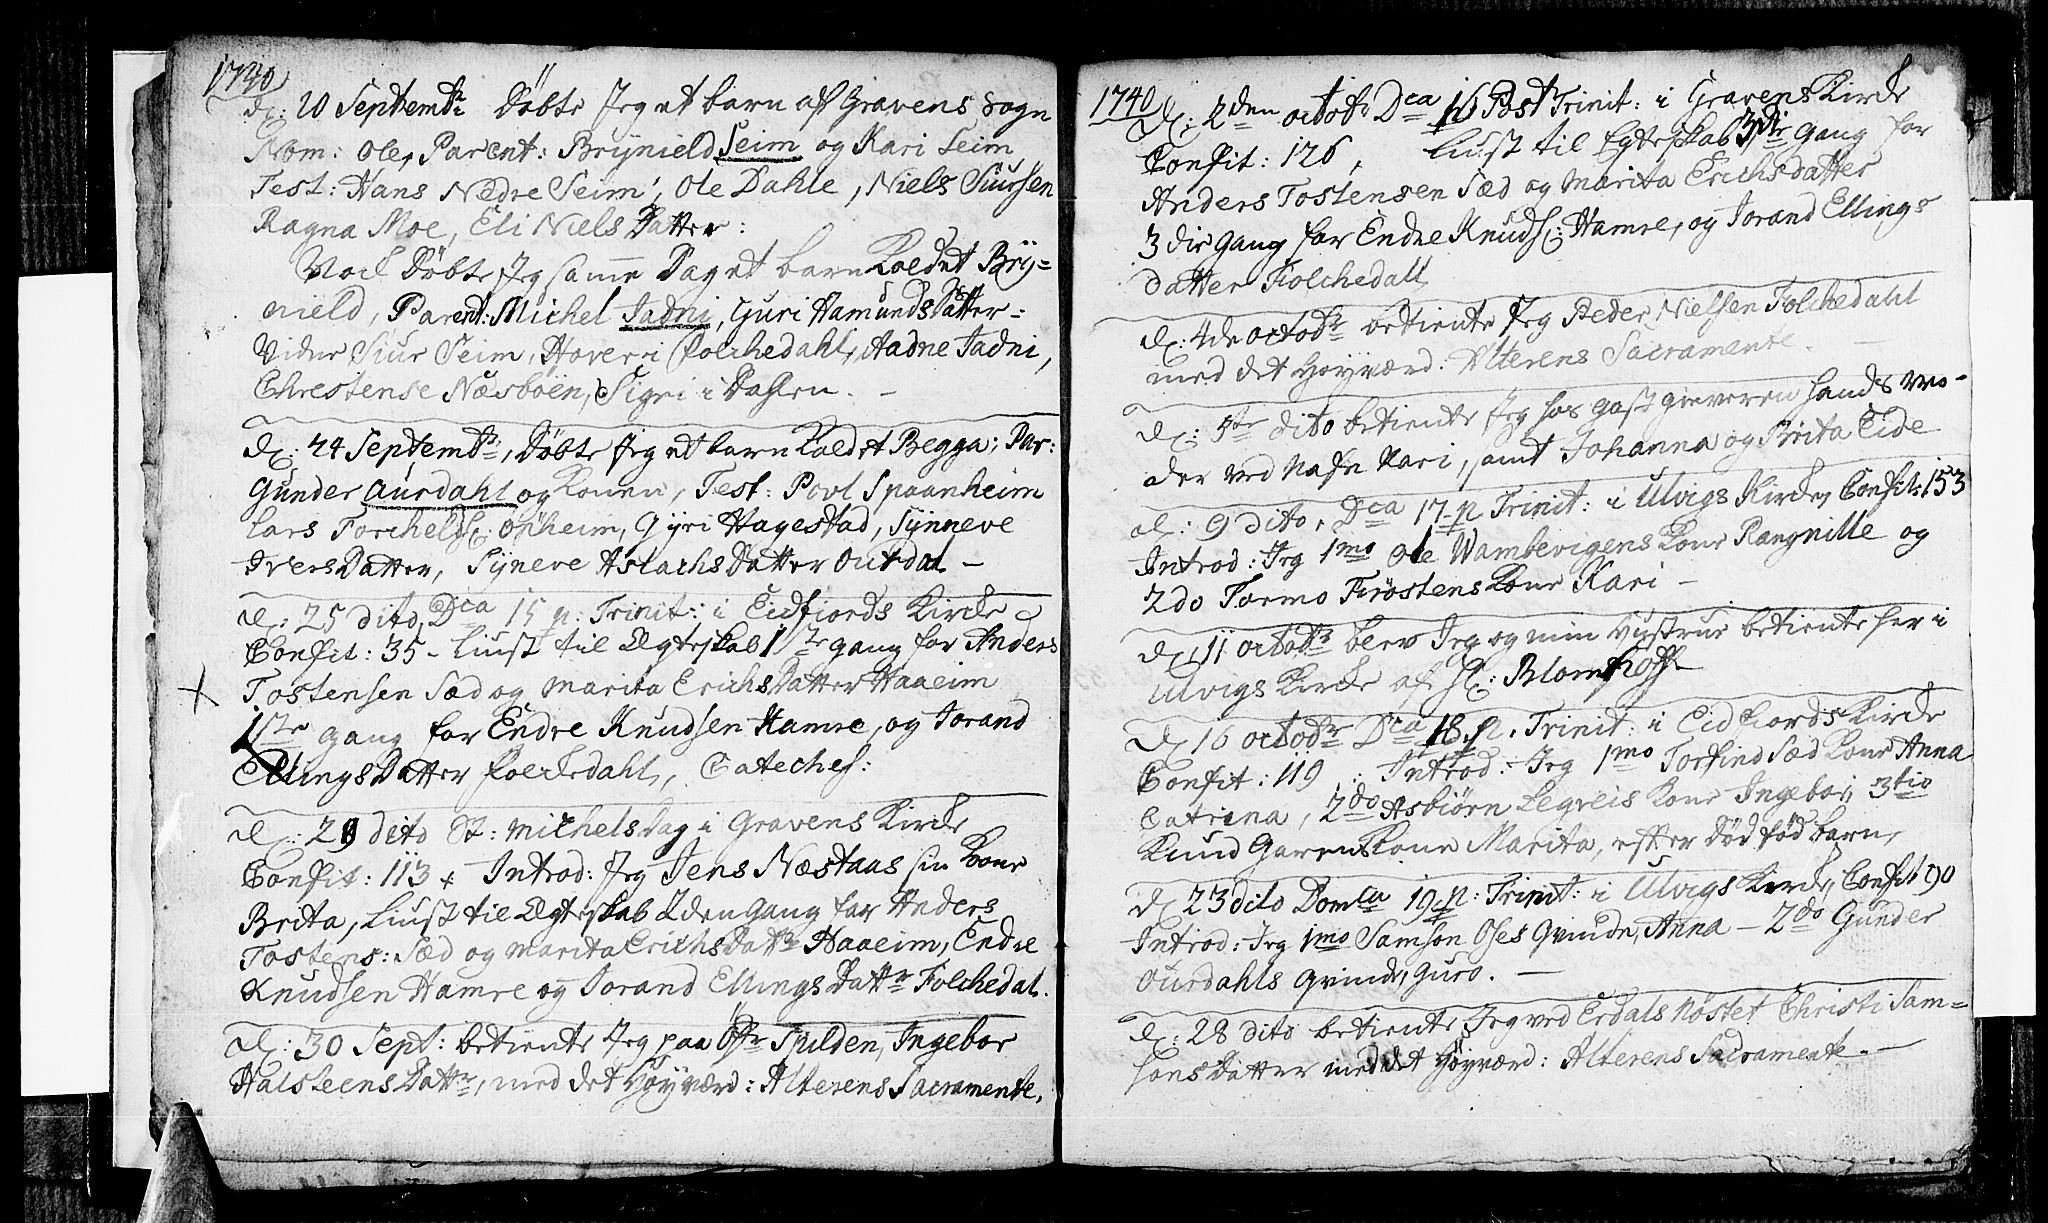 1740
d: 20 Septembr Døbte Jeg et barn af Gravens Sogn
Nom: Ole, Parent: Brÿnield Seim og Kari Seim
Test: Hans Nedre Seim, Ole Dahle, Niels Siursen
Ragna Moe, Eli Niels Datter:
Noch Døbte Jeg samme Dag et barn Kaldet Brÿ=
nield, Parent: Michel Jadni, Guri Hamunds Datter=
Vider Siur Seim, Hover i Folchedahl, Aadne Jadni,
Chrestense Næsbøen, Sigri i Dahlen. -
d: 24 Septembr, Døbte Jeg et barn Kaldet Begga; Par:
Gunder Aurdahl og Konen, Test: Povl Spaanheim
Lars Torchelds: Opheim, Gÿri Hagestad, Sÿnneve
Ivers Datter, Sÿneve Aslachs Datter Ourdal -
d: 25 dito, Dca 15 p: Trinit: i Eidfiords Kirche
Confit: 35 - Liust til Ægteskab 1ste gang for Anders
Tostensen Sæd og Marita Erichs Datter Haaeim
1ste gang for Endre Knudsen Hamre, og Jorand
Ellings Datter Folchedahl, Cateches:
d: 29 dito St: Michels Dag i Gravens Kirche
Confit: 113 + Introd: Jeg Jens Næstaas sin Kone
Brita, Liust til Ægteskab 2den Gang for Anders
Tostens: Sæd og Marita Erichs Dattr Haaeim, Endre
Knudsen Hamre og Jorand Ellings Dattr Folchedal.
d: 30 Sept: betiente Jeg paa Øfr Spilden, Ingebor
Halsteens Dattr, med det Høÿværd: Alterens Sacramente.
1740
d: 2den octobr Dca 16 Post Trinit: i Gravens Kirche
Confit: 126, Liust til Egteskab 3die gang for
Anders Tostensen Sæd og Marita Erichsdatter
3die gang for Endre Knuds: Hamre, og Jorand Ellings
datter Folchedall
d: 4de octobr betiente Jeg Peder Nielsen Folchedahl
med det Høÿværd: Alterens Sacramente. -
d: 5te dito betiente Jeg hos gastgieveren hands Mo-
der ved Nafn Kari, samt Johanna og Brita Eide
d: 9 dito, Dca 17 p Trinit: i Ulvigs Kirche, Confit: 153
Introd: Jeg 1mo Ole Wambevigens Kone Rangnille og
2do Tormo Frøstens Kone Kari -
d: 11 octobr blev Jeg og min Hustrue betiente her i
Ulvigs Kirche af Hr: Blomhoff
d: 16 octobr Dca 18 p. Trinit: i Eidfiords Kirche
Confit: 119 . Introd: Jeg 1mo Torfind Sæd Kone Anna
Catrina, 2do Asbiørn Legreis Kone Ingebor, 3tio
Knud Garens Kone Marita, efter Død fød barn,
d: 23 dito Domca 19 p: Trinit: i Ulvigs Kirche, Confit 90
Introd: Jeg 1mo Samson Oses Qvinde, Anna - 2do Gunder
Ourdahls Qvinde, Guro. -
d: 28 dito betiente Jeg ved Erdals Nøstet Christi Sam=
sons Datter med det Høÿværd: Alterens Sacramente. -